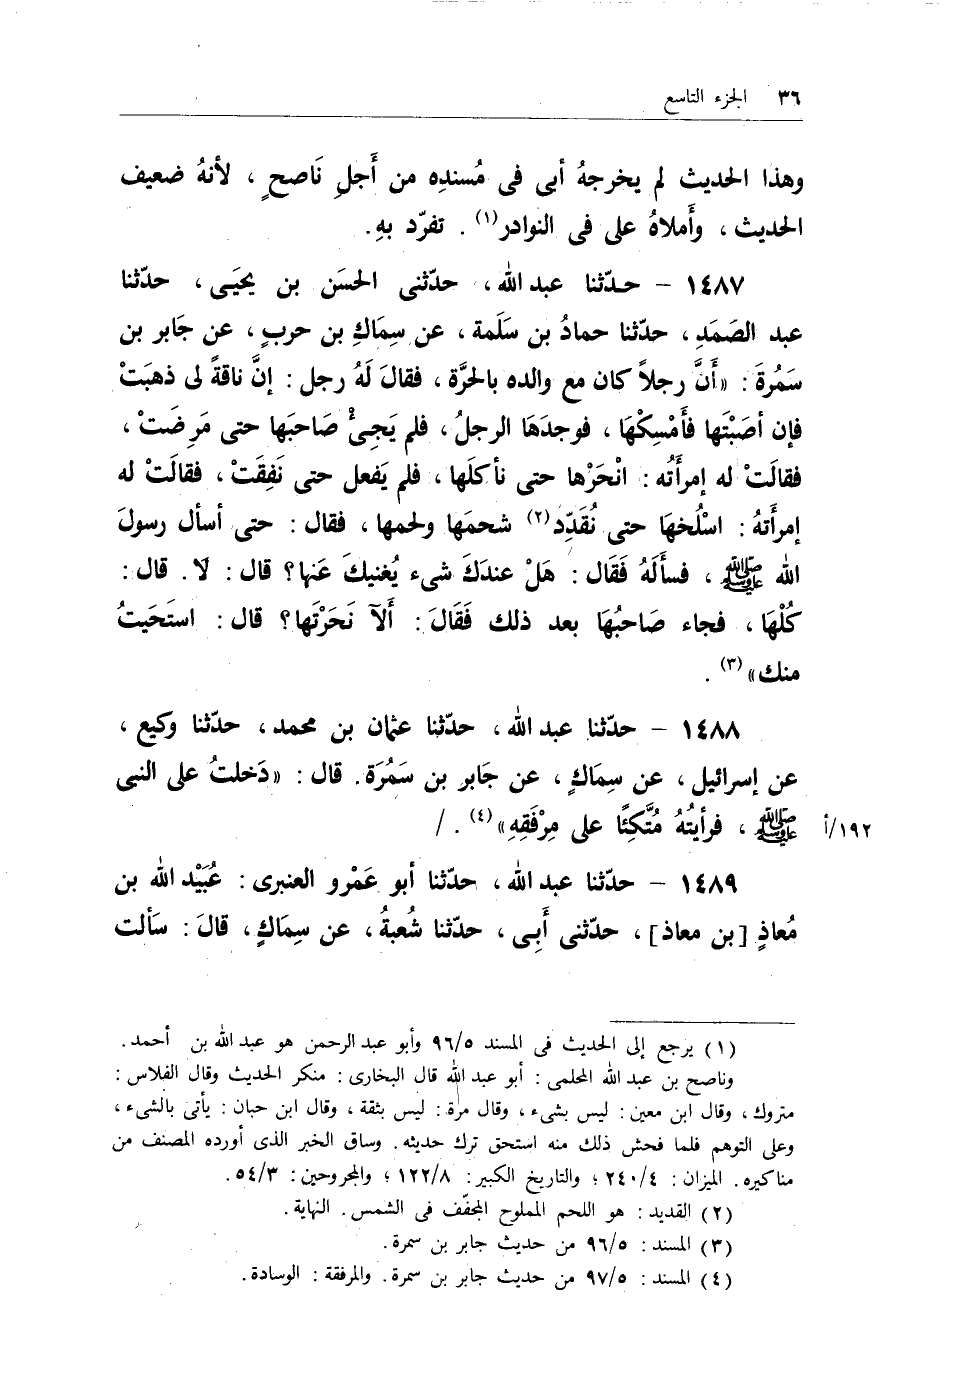 ٣٦ الجزء التاسع
وهذا الحديث لم يخرجهُ أبى فى مُسندِه من أَجلِ نَاصحٍ ، لأنهُ ضعيف
الحديث ، وأَملاهُ على فى النوادر(١) . تفرّد بهِ.
١٤٨٧ – حدّثنا عبد الله ، حدّثنى الحسَن بن يحيَـى ، حدّثنا
عبد الصَمَدِ ، حدّثنا حمادُ بن سَلَمة ، عن سِمَاكِ بن حربٍ ، عن جَابر بن
سَمُرةَ : «أَنَّ رجلاً كان مع والده بالحرَّة ، فقالَ لَهُ رجل : إنَّ ناقةً لى ذهبَتْ
فإن أصَبْتَها فأَمْسِكْهَا ، فوجدَهَا الرجلُ ، فلم يَجِىْٔ صَاحبَها حتى مَرِضَتْ ،
فقالَتْ له إمرأَتُه : انْحَرْها حتى نأكلَها ، فلم يَفعل حتى نَفِقَتْ ، فقالَتْ له
إمرأَتهُ : اسْلُخهَا حتى نُقَدِّد(٢) شحمَها ولحمها ، فقال : حتى أسأل رسولَ
الله ﷺ ، فسأَلَهُ فَقَال : هَلْ عندَكَ شىء يُغنيكَ عَنها؟ قال : لَا. قال :
كُلْهَا ، فجاء صَاحبُهَا بعد ذلك فَقَالَ : أَلآ نَحَرْتَها؟ قال : استَحَيتُ
منك»(٣) .
١٤٨٨ – حدّثنا عبد الله ، حدّثنا عثمان بن محمد ، حدّثنا وكيع ،
عن إسرائيل ، عن سِمَاكٍ ، عن جَابر بن سَمُرَة. قال : «دَخلتُ على النبى
ﷺ ، فرأيتُهُ مُتَّكِئًا على مِرْفَقِهِ»(٤) . / ١٩٢/أ
١٤٨٩ – حدّثنا عبد الله ، حدّثنا أبو عَمْرو العنبرى : عُبَيْد الله بن
مُعاذٍ [بن معاذ] ، حدّثنى أَبِـى ، حدّثنا شُعبةُ ، عن سِمَاكٍ ، قالَ : سَألت
(١) يرجع إلى الحديث فى المسند ٩٦/٥ وأبو عبد الرحمن هو عبد الله بن أحمد .
وناصح بن عبد الله المحلمى : أبو عبد الله قال البخارى : منكر الحديث وقال الفلاس :
متروك ، وقال ابن معين : ليس بشىء ، وقال مرّة : ليس بثقة ، وقال ابن حبان : يأتى بالشىء ،
وعلى التوهم فلما فحش ذلك منه استحق ترك حديثه . وساق الخبر الذى أورده المصنف من
مناكيره . الميزان : ٢٤٠/٤ ؛ والتاريخ الكبير : ١٢٢/٨ ؛ والمجروحين : ٥٤/٣ .
(٢) القديد : هو اللحم المملوح المجفّف فى الشمس . النهاية .
(٣) المسند : ٩٦/٥ من حديث جابر بن سمرة .
(٤) المسند : ٩٧/٥ من حديث جابر بن سمرة . والمرفقة : الوسادة .